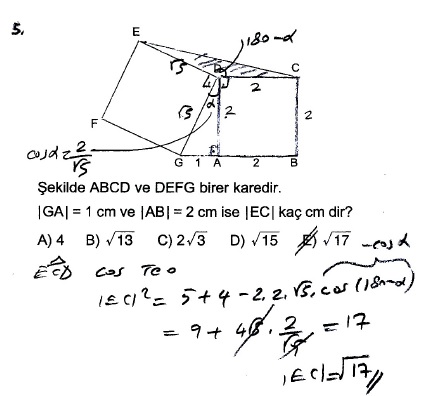 5.
E
D
180-α
C
√5
2
α
√5
2
2
F
cosα = 2/√5
G 1 A 2 B
Şekilde ABCD ve DEFG birer karedir.
|GA| = 1 cm ve |AB| = 2 cm ise |EC| kaç cm dir?
A) 4 B) √13 C) 2√3 D) √15 E) √17
-cosα
ECD cos Teo
|EC|² = 5 + 4 - 2.2.√5.cos(180-α)
= 9 + 4√5 . 2/√5 = 17
|EC| = √17 //